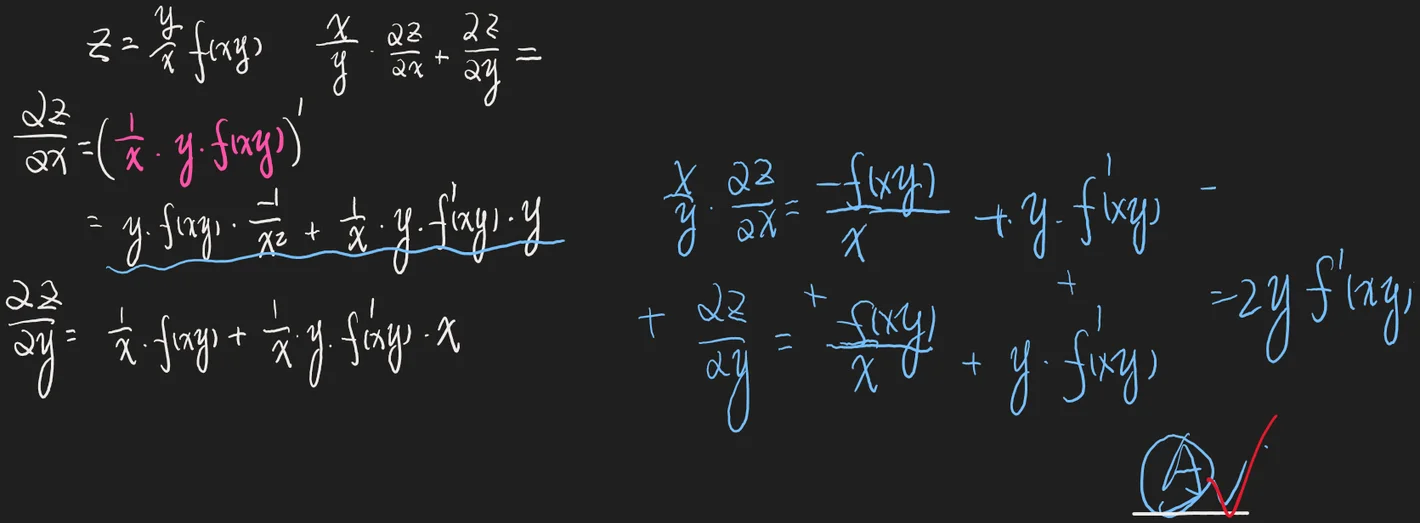 z = y/x f(xy) x/y · ∂z/∂x + ∂z/∂y =
∂z/∂x = (1/x · y · f(xy))'
= y · f(xy) · -1/x² + 1/x · y · f'(xy) · y
∂z/∂y = 1/x · f(xy) + 1/x · y · f'(xy) · x
x/y · ∂z/∂x = -f(xy)/x + · y · f'(xy) -
+ +
+ ∂z/∂y = f(xy)/x + y · f'(xy)
= 2y f'(xy)
A